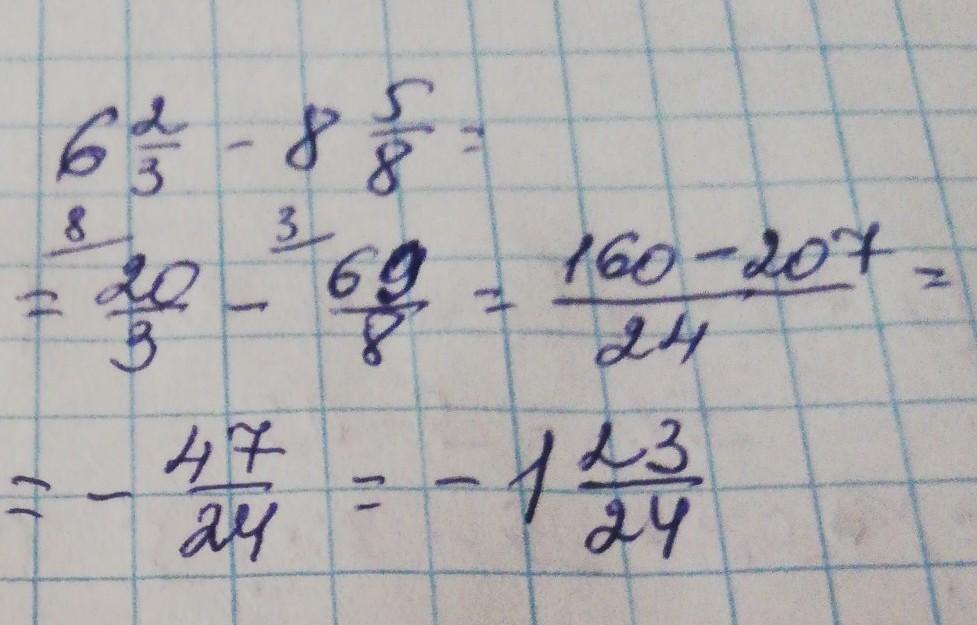 6 2/3 - 8 5/8 =
= 8/ 20/3 - 3/ 69/8 = (160-207)/24 =
= - 47/24 = -1 23/24